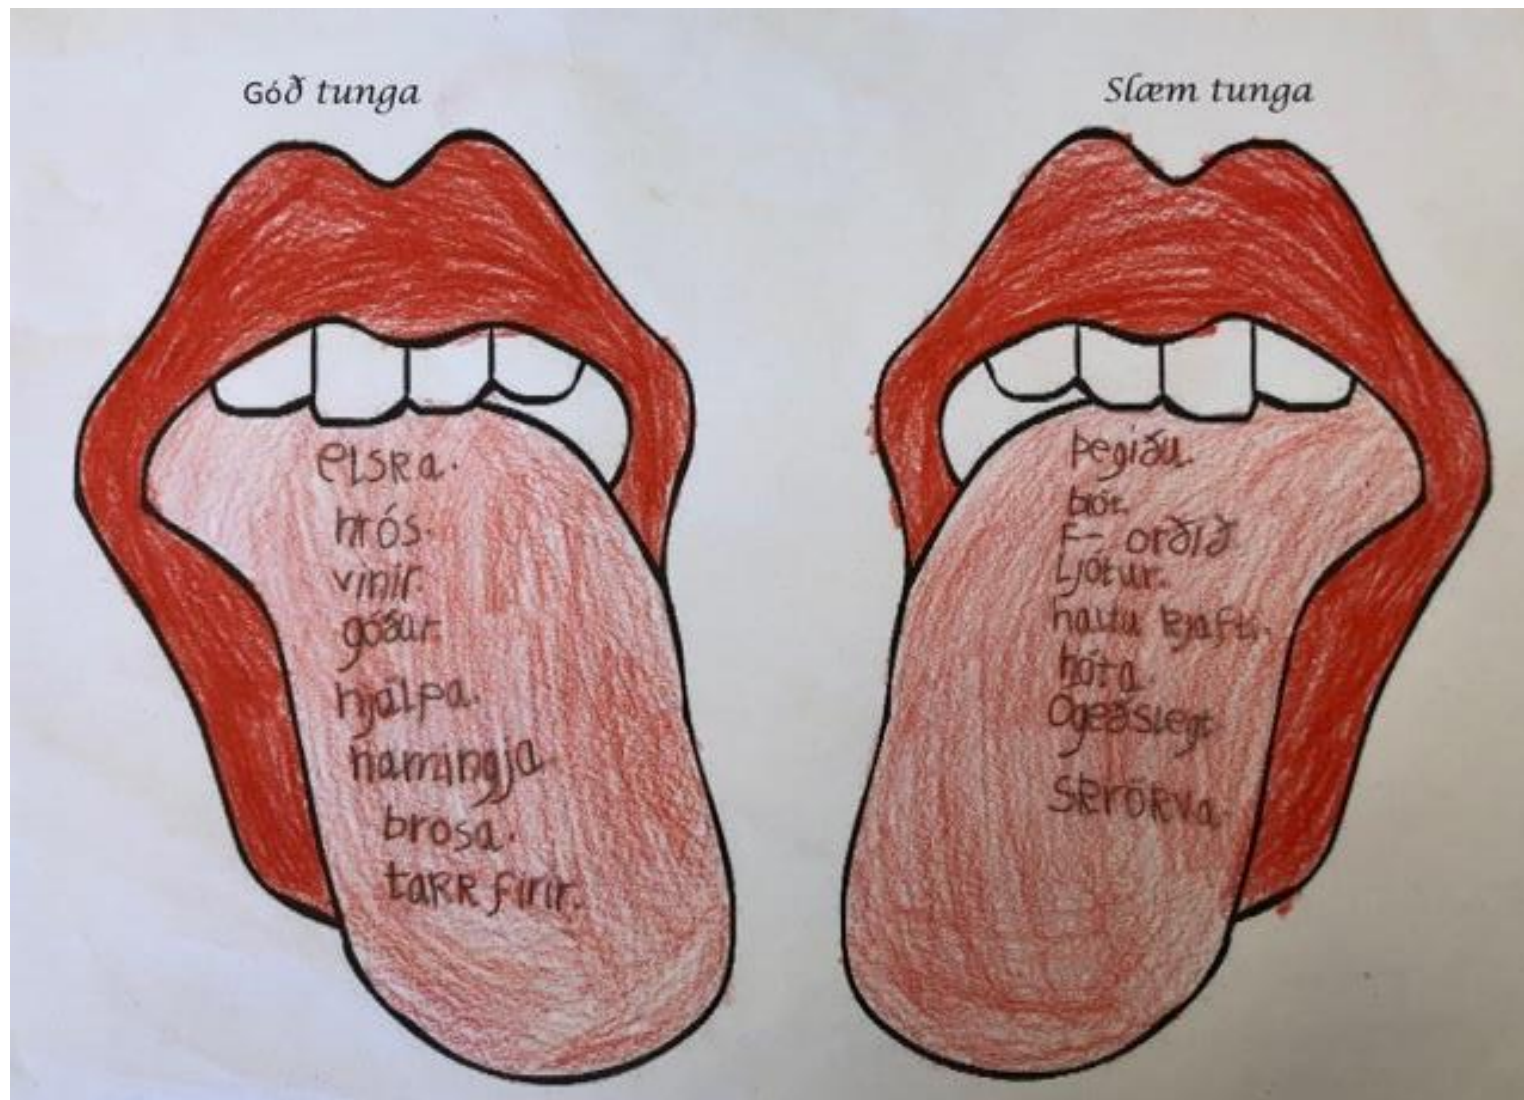 Góð tunga
elska.
hrós.
vinir.
góðar.
hjálpa.
hamingja
brosa.
takk firir.
Slæm tunga
þegiðu.
blót.
F- orðið
Ljótur.
haltu kjafti.
hóta.
Ógeðslegt
skrökva.